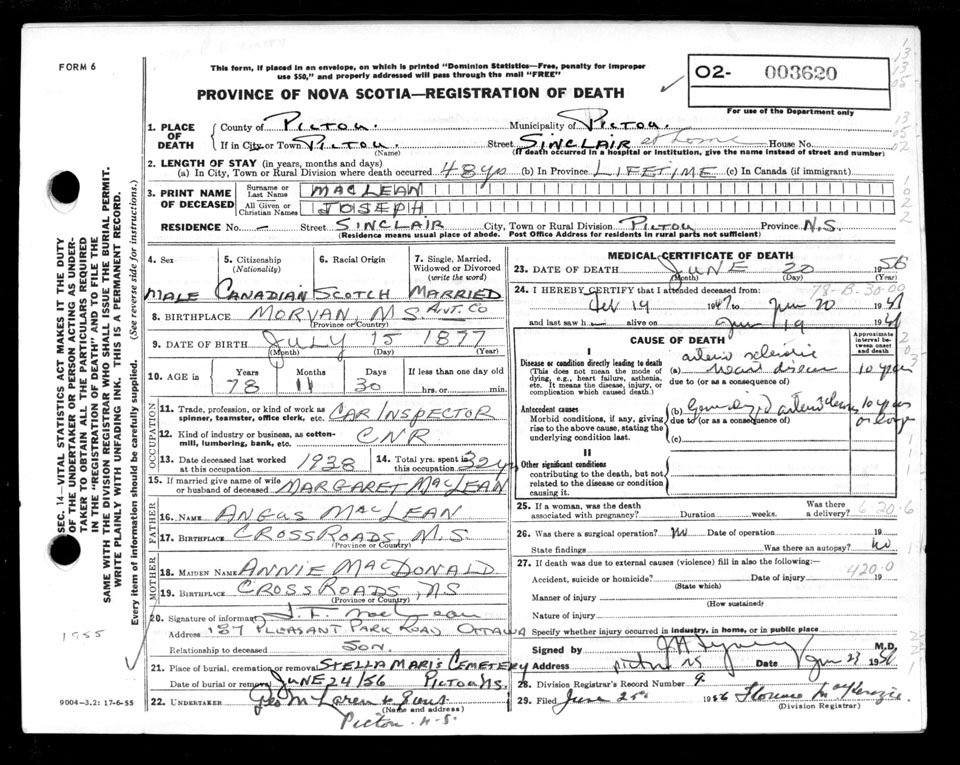 FORM 6
This form, if placed in an envelope, on which is printed "Dominion Statistics—Free, penalty for improper
use $50," and properly addressed will pass through the mail "FREE"
02- 003620
PROVINCE OF NOVA SCOTIA—REGISTRATION OF DEATH
For use of the Department only
1. PLACE OF DEATH
County of PICTOU. Municipality of PICTOU.
If in City or Town PICTOU. Street SINCLAIR at home House No.
(Name) (If death occurred in a hospital or institution, give the name instead of street and number)
2. LENGTH OF STAY (in years, months and days)
(a) In City, Town or Rural Division where death occurred 48 yrs (b) In Province LIFETIME (c) In Canada (if immigrant)
3. PRINT NAME OF DECEASED
Surname or Last Name MACLEAN
All Given or Christian Names JOSEPH
RESIDENCE No. – Street SINCLAIR City, Town or Rural Division PICTOU Province N.S.
(Residence means usual place of abode. Post Office Address for residents in rural parts not sufficient)
4. Sex
5. Citizenship (Nationality)
6. Racial Origin
7. Single, Married, Widowed or Divorced (write the word)
MALE CANADIAN SCOTCH MARRIED
8. BIRTHPLACE MORVAN, N.S. ANT. CO
(Province or Country)
9. DATE OF BIRTH JULY 15 1877
(Month) (Day) (Year)
10. AGE in Years Months Days If less than one day old
78 11 30 hrs. or min.
OCCUPATION
11. Trade, profession, or kind of work as
spinner, teamster, office clerk, etc. CAR INSPECTOR
12. Kind of industry or business, as cotton-
mill, lumbering, bank, etc. CNR
13. Date deceased last worked at this occupation 1938
14. Total yrs. spent in this occupation 32 yrs
15. If married give name of wife
or husband of deceased MARGARET MACLEAN
FATHER
16. NAME ANGUS MACLEAN
17. BIRTHPLACE CROSS ROADS, N.S.
(Province or Country)
MOTHER
18. MAIDEN NAME ANNIE MACDONALD
19. BIRTHPLACE CROSS ROADS, NS
(Province or Country)
20. Signature of informant
Address 187 PLEASANT PARK ROAD OTTAWA
Relationship to deceased SON.
21. Place of burial, cremation or removal STELLA MARIS CEMETERY
Date of burial or removal JUNE 24/56 PICTOU N.S.
22. UNDERTAKER
(Name and address)
Pictou N.S.
MEDICAL CERTIFICATE OF DEATH
23. DATE OF DEATH JUNE 20 1956
(Month) (Day) (Year)
78-B-30-00
24. I HEREBY CERTIFY that I attended deceased from:
Feb 19 1947 to June 20 19
and last saw h alive on June 19 19
CAUSE OF DEATH
Approximate interval between onset and death
I
Disease or condition directly leading to death
(This does not mean the mode of
dying, e.g., heart failure, asthenia,
etc. It means the disease, injury, or
complication which caused death.)
(a) heart disease 10 years
due to (or as a consequence of)
Antecedent causes
Morbid conditions, if any, giving
rise to the above cause, stating the
underlying condition last.
(b) Generalized 10 years
due to (or as a consequence of) or longer
(c)
II
Other significant conditions
contributing to the death, but not
related to the disease or condition
causing it.
25. If a woman, was the death
associated with pregnancy? Duration weeks. Was there a delivery?
26. Was there a surgical operation? No Date of operation 19
State findings Was there an autopsy? No
27. If death was due to external causes (violence) fill in also the following:
420.0
Accident, suicide or homicide? Date of injury 19
(State which)
Manner of injury
(How sustained)
Nature of injury
Specify whether injury occurred in industry, in home, or in public place
Signed by M.D.
Address Pictou NS Date June 23 19
28. Division Registrar's Record Number 9.
29. Filed June 25th 1956 Florence McKenzie
(Division Registrar)
SEC. 14—VITAL STATISTICS ACT MAKES IT THE DUTY
OF THE UNDERTAKER OR PERSON ACTING AS UNDER-
TAKER TO OBTAIN ALL THE PARTICULARS REQUIRED
IN THE "REGISTRATION OF DEATH" AND TO FILE THE
SAME WITH THE DIVISION REGISTRAR WHO SHALL ISSUE THE BURIAL PERMIT.
WRITE PLAINLY WITH UNFADING INK. THIS IS A PERMANENT RECORD.
Every item of information should be carefully supplied. (See reverse side for instructions.)
1955
9004-3.2: 17-6-55